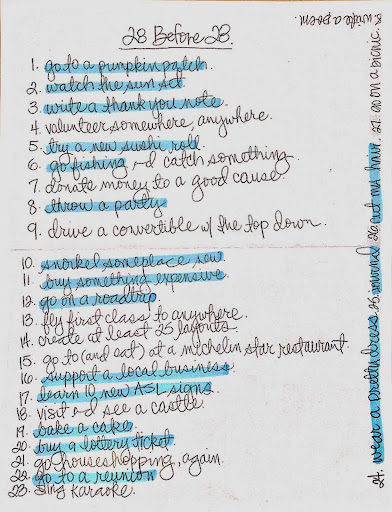 28 Before 28.
1. go to a pumpkin patch.
2. watch the sun set
3. write a thank you note.
4. volunteer somewhere, anywhere.
5. try a new sushi roll.
6. go fishing and catch something.
7. donate money to a good cause.
8. throw a party
9. drive a convertible w/ the top down.
10. snorkel someplace new
11. buy something expensive.
12. go on a roadtrip
13. fly first class to anywhere.
14. create at least 25 layouts.
15. go to (and eat) at a michelin star restaurant.
16. support a local business
17. learn 10 new ASL signs
18. visit and see a castle.
19. bake a cake.
20. buy a lottery ticket
21. go househopping, again.
22. go to a reunion
23. sing karaoke.
24. wear a pretty dress. 25. 26. cut my hair. 27. go on a picnic.
28. write a poem.